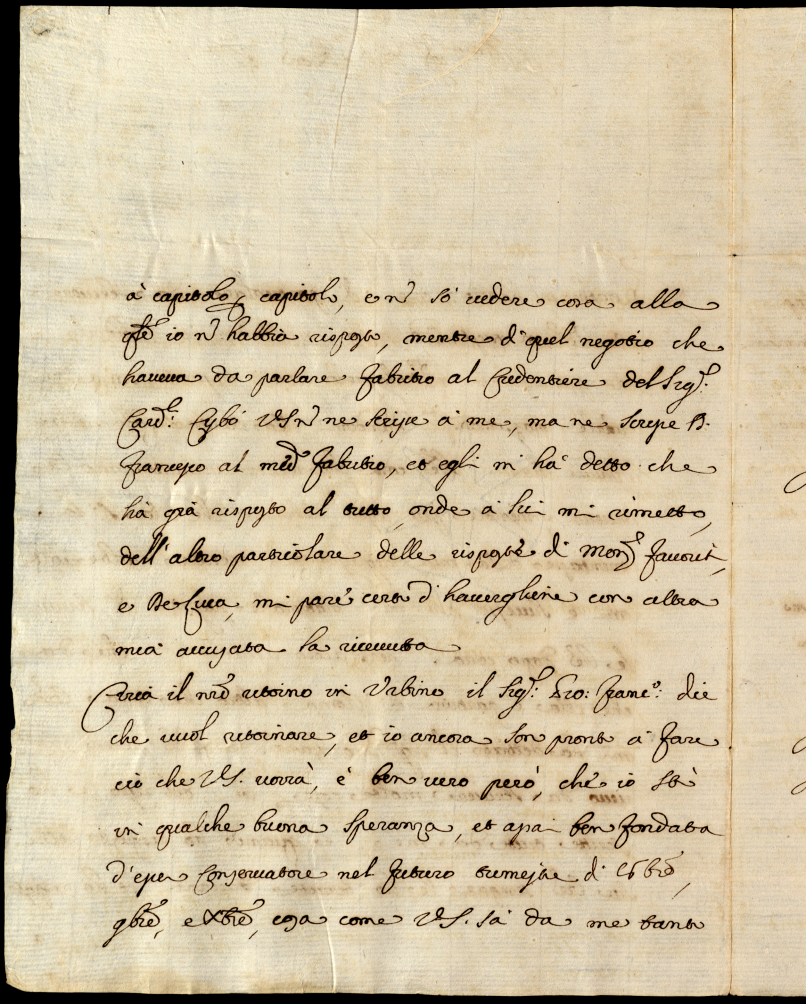 à capitolo p capitolo, e nō sò vedere cosa alla
qle io nō habbia risposto, mentre d quel negotio che
haveva da parlare Fabritio al Credentiere del Sigr:
Cardl: Cybò VS nō ne scrisse à me, ma ne scrisse B.
Francesco al mēd Fabritio, et egli mi hà detto che
hà già risposto al tutto, onde à lui mi rimetto,
dell'altro particolare delle risposte di Monsr Favoriti,
e De Luca, mi pare certo d haverghene con altra
mia accusata la ricevuta
Circa il nrō ritorno in Urbino il Sigr: Gio: Franco: dice
che vuol ritornare, et io ancora son pronto à fare
ciò che VS. vorrà, è ben vero però, che io stò
in qualche buona speranza, et assai ben fondata
d'esser Conservatore nel futuro trimestre di 8brē,
9brē, e Xbrē, cosa come VS. sà da me tanto